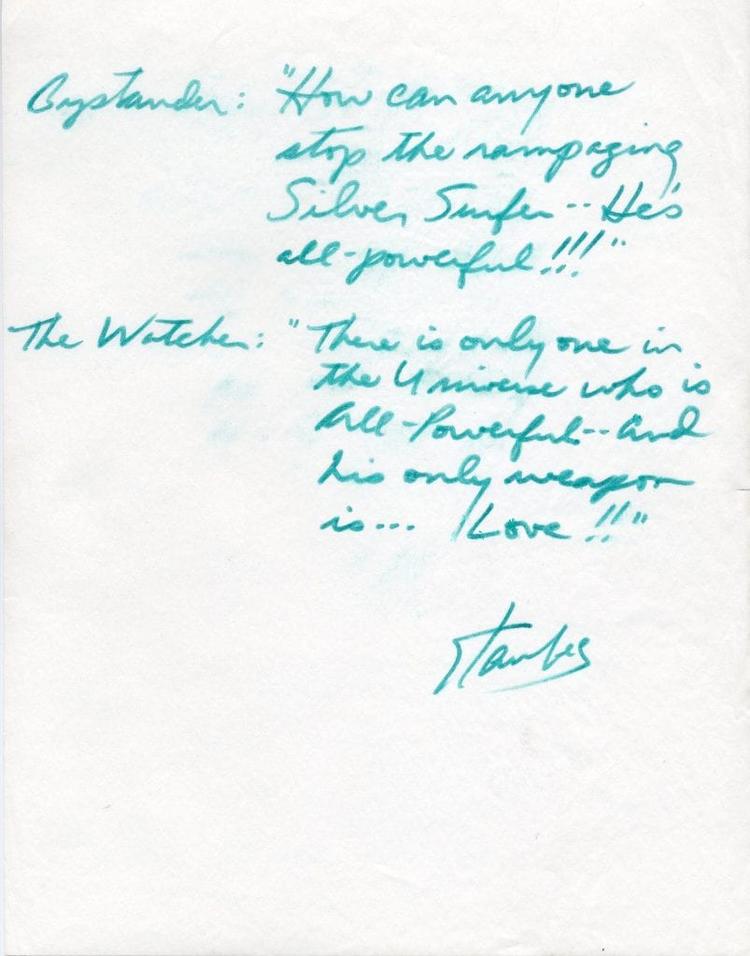 Bystander: "How can anyone
stop the rampaging
Silver Surfer -- He's
all-powerful!!!"
The Watcher: "There is only one in
the Universe who is
All-Powerful -- And
his only weapon
is... Love!!"
Stan Lee